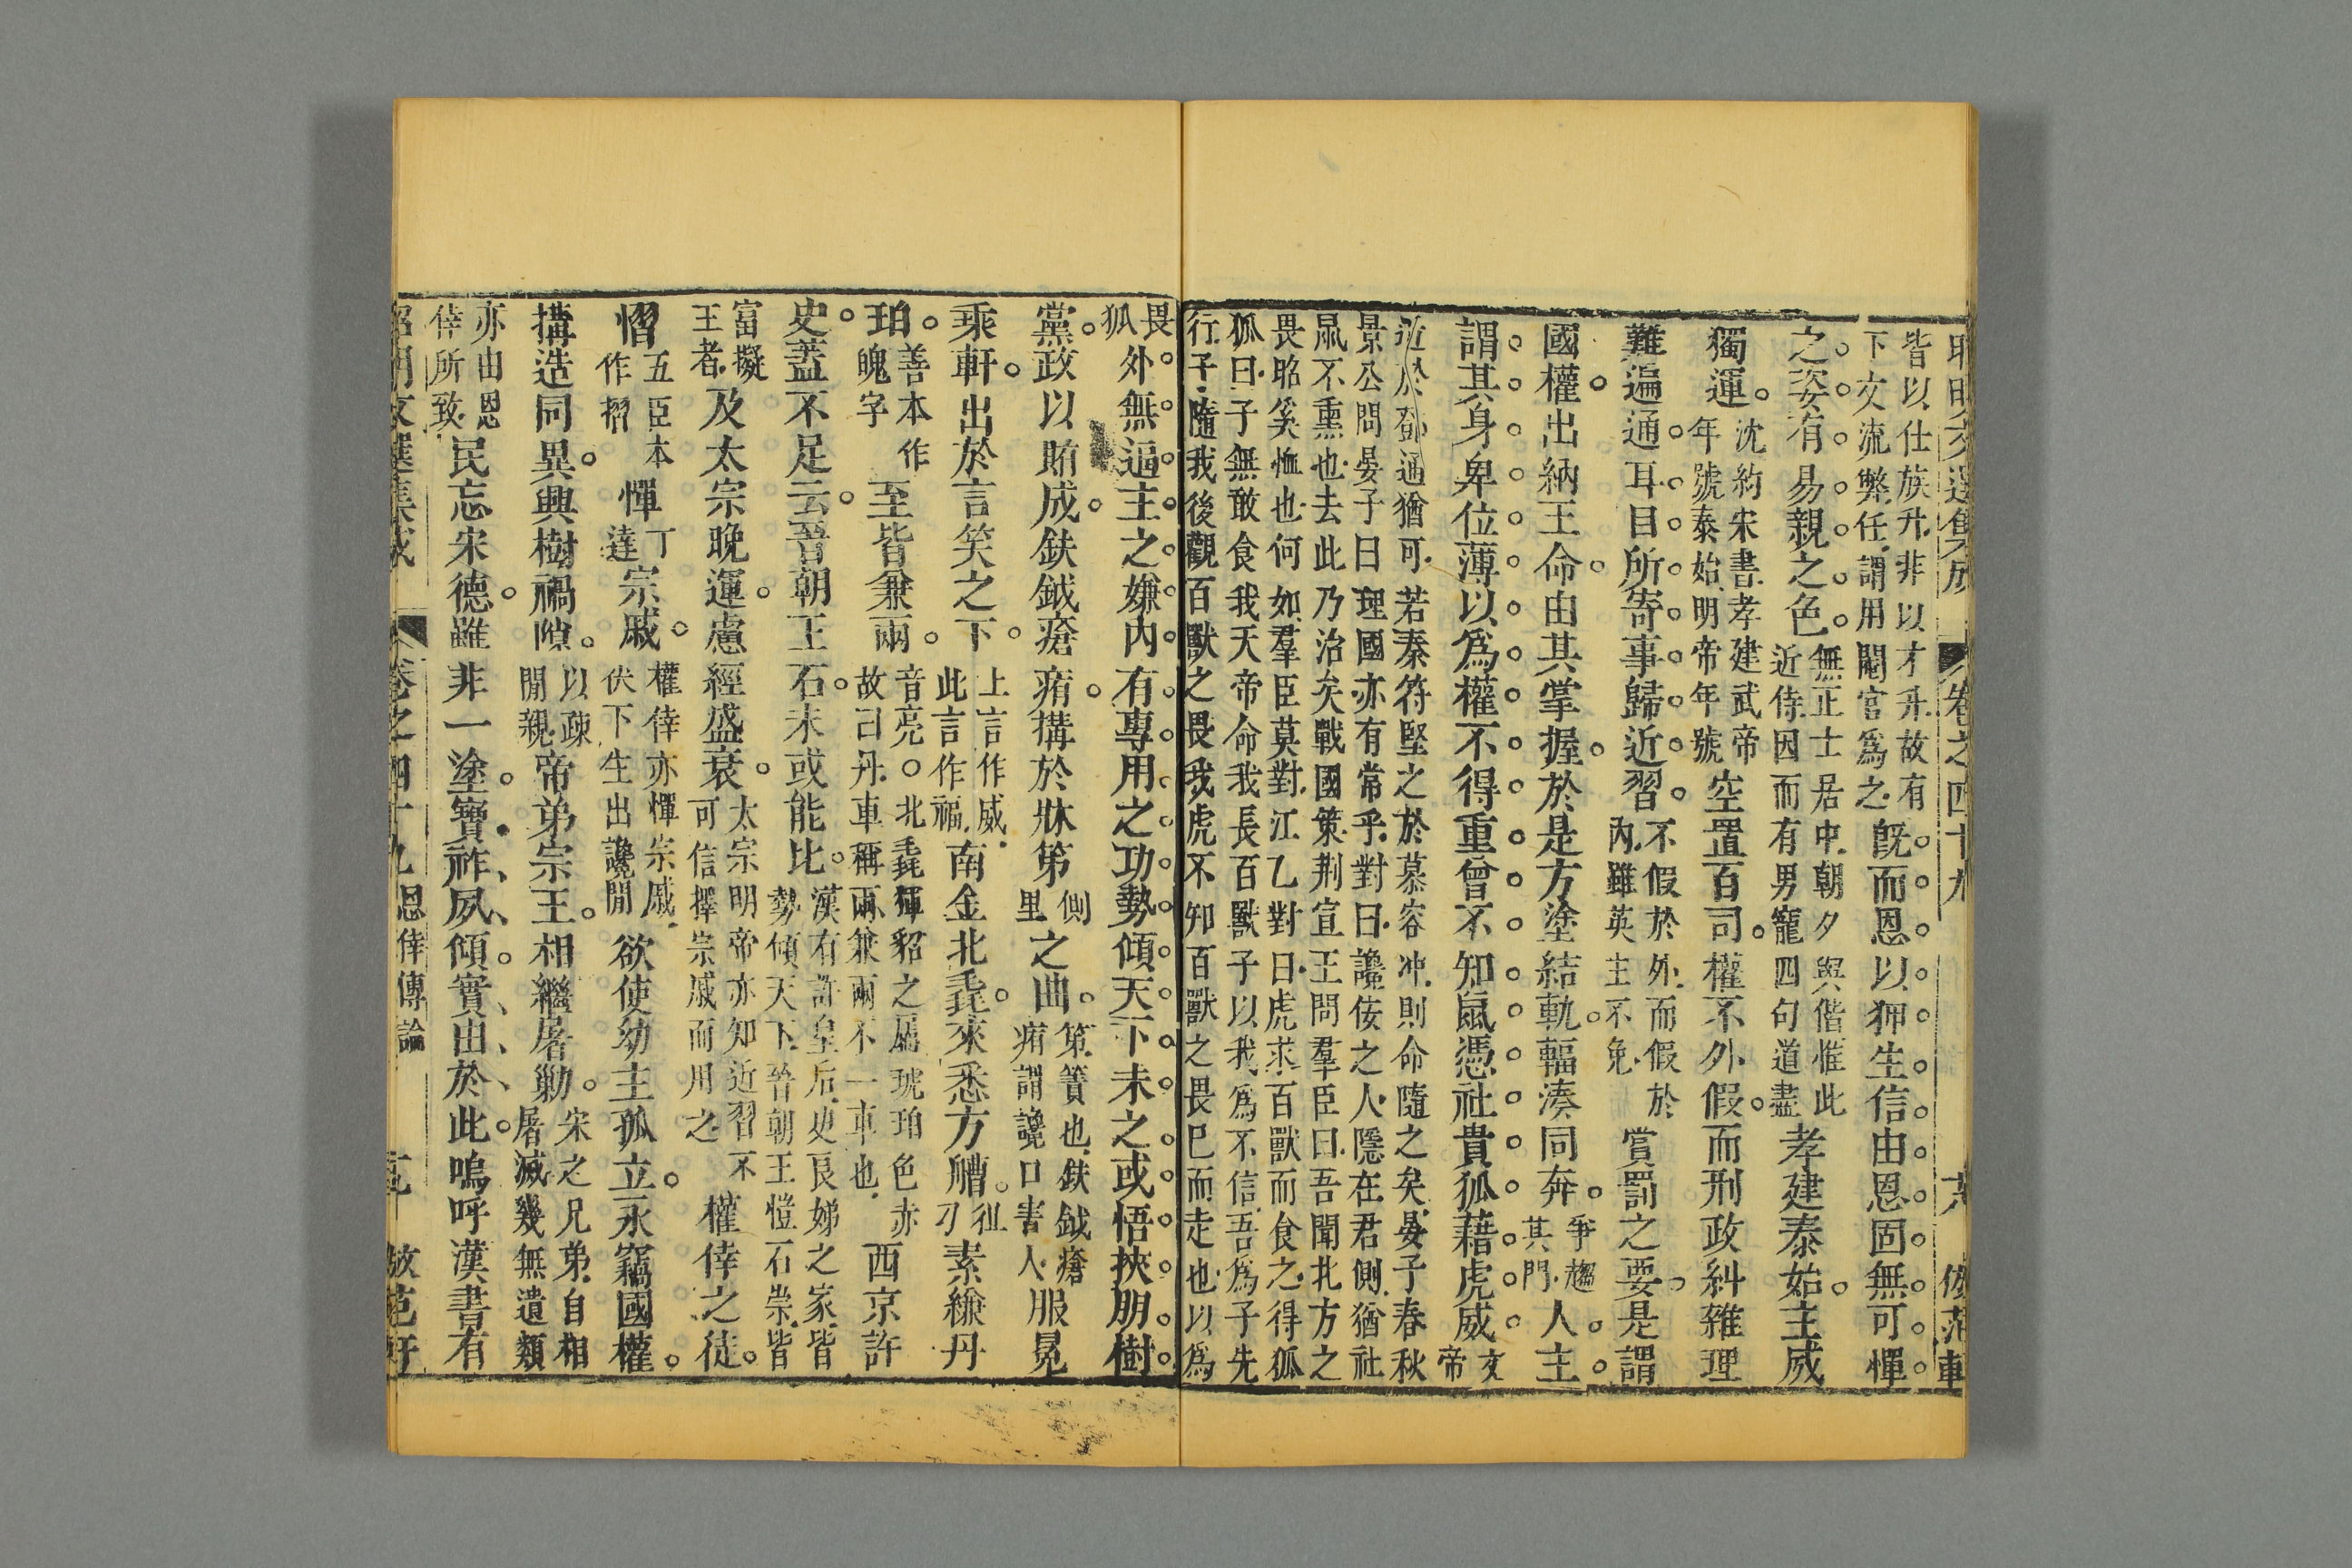 昭明文選集成 卷之四十九
皆以仕族升非以才升故有下文流弊任謂用閹官爲之 旣而恩以狎生信由恩固無可憚
之姿有易親之色 無正士居中朝夕與偕惟此近侍因而有男寵四句道盡 孝建泰始主威
獨運 沈約宋書孝建武帝年號泰始明帝年號 空置百司權不外假而刑政糾雜理
難遍通耳目所寄事歸近習 不假於外而假於內雖英主不免 賞罰之要是謂
國權出納王命由其掌握於是方塗結軌輻湊同奔 爭趨其門 人主
謂其身卑位薄以爲權不得重曾不知鼠憑社貴狐藉虎威 文帝
近於鄧通猶可若秦符堅之於慕容冲則命隨之矣晏子春秋
景公問晏子曰理國亦有常乎對曰讒佞之人隱在君側猶社
鼠不熏也去此乃治矣戰國策荆宣王問羣臣曰吾聞北方之
畏昭奚恤也何如羣臣莫對江乙對曰虎求百獸而食之得狐
狐曰子無敢食我天帝命我長百獸子以我爲不信吾爲子先
行子隨我後觀百獸之畏我虎不知百獸之畏已而走也以爲
畏狐 外無逼主之嫌內有專用之功勢傾天下未之或悟挾朋樹
黨政以賄成鈇鉞瘡痏搆於牀笫 側里 之曲 笫簀也鈇鉞瘡痏謂讒口害人 服冕
乘軒出於言笑之下 上言作威此言作福 南金北毳來悉方艚 徂刀 素縑丹
珀 善本作魄字 至皆兼兩 音亮○北毳貂之屬琥珀色赤故曰丹車稱兩兼兩不一車也 西京許
史蓋不足云晉朝王石未或能比 漢有許皇后史良娣之家皆勢傾天下晉朝王愷石崇皆
富擬王者 及太宗晚運慮經盛衰 太宗明帝亦知近習不可信擇宗戚而用之 權倖之徒
慴 五臣本作摺 憚 丁達 宗戚 權倖亦憚宗戚伏下生出讒閒 欲使幼主孤立永竊國權
搆造同異興樹禍隙 以疎閒親 帝弟宗王相繼屠勦 宋之兄弟自相屠滅幾無遺類
亦由恩倖所致 民忘宋德雖非一塗寶祚夙傾實由於此嗚呼漢書有
昭明文選集成 卷之四十九 恩倖傳論 倣范軒